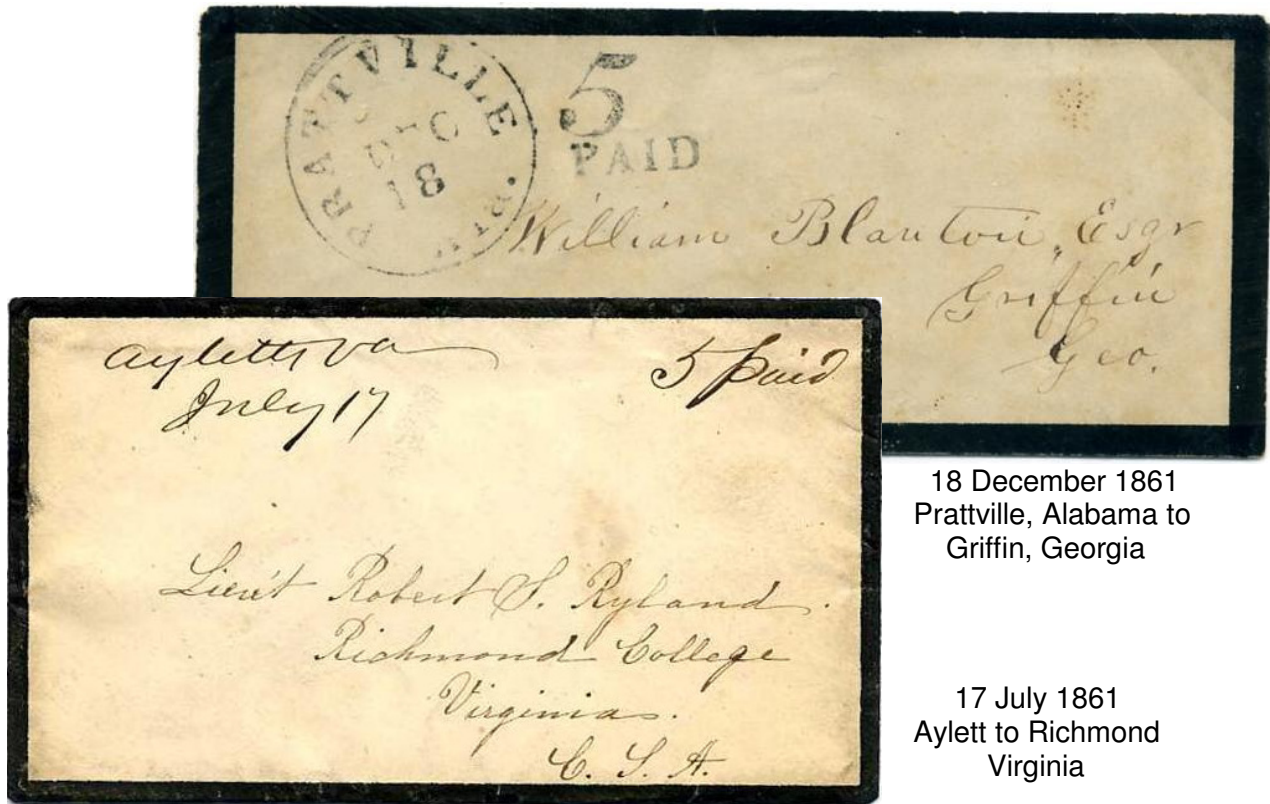 PRATTVILLE
DEC
18
5
PAID
William Blanton, Esqr
Griffin
Geo.
Ayletts Va
July 17
5 Paid
Lieut Robert S. Ryland.
Richmond College
Virginia.
C. S. A.
18 December 1861
Prattville, Alabama to
Griffin, Georgia
17 July 1861
Aylett to Richmond
Virginia